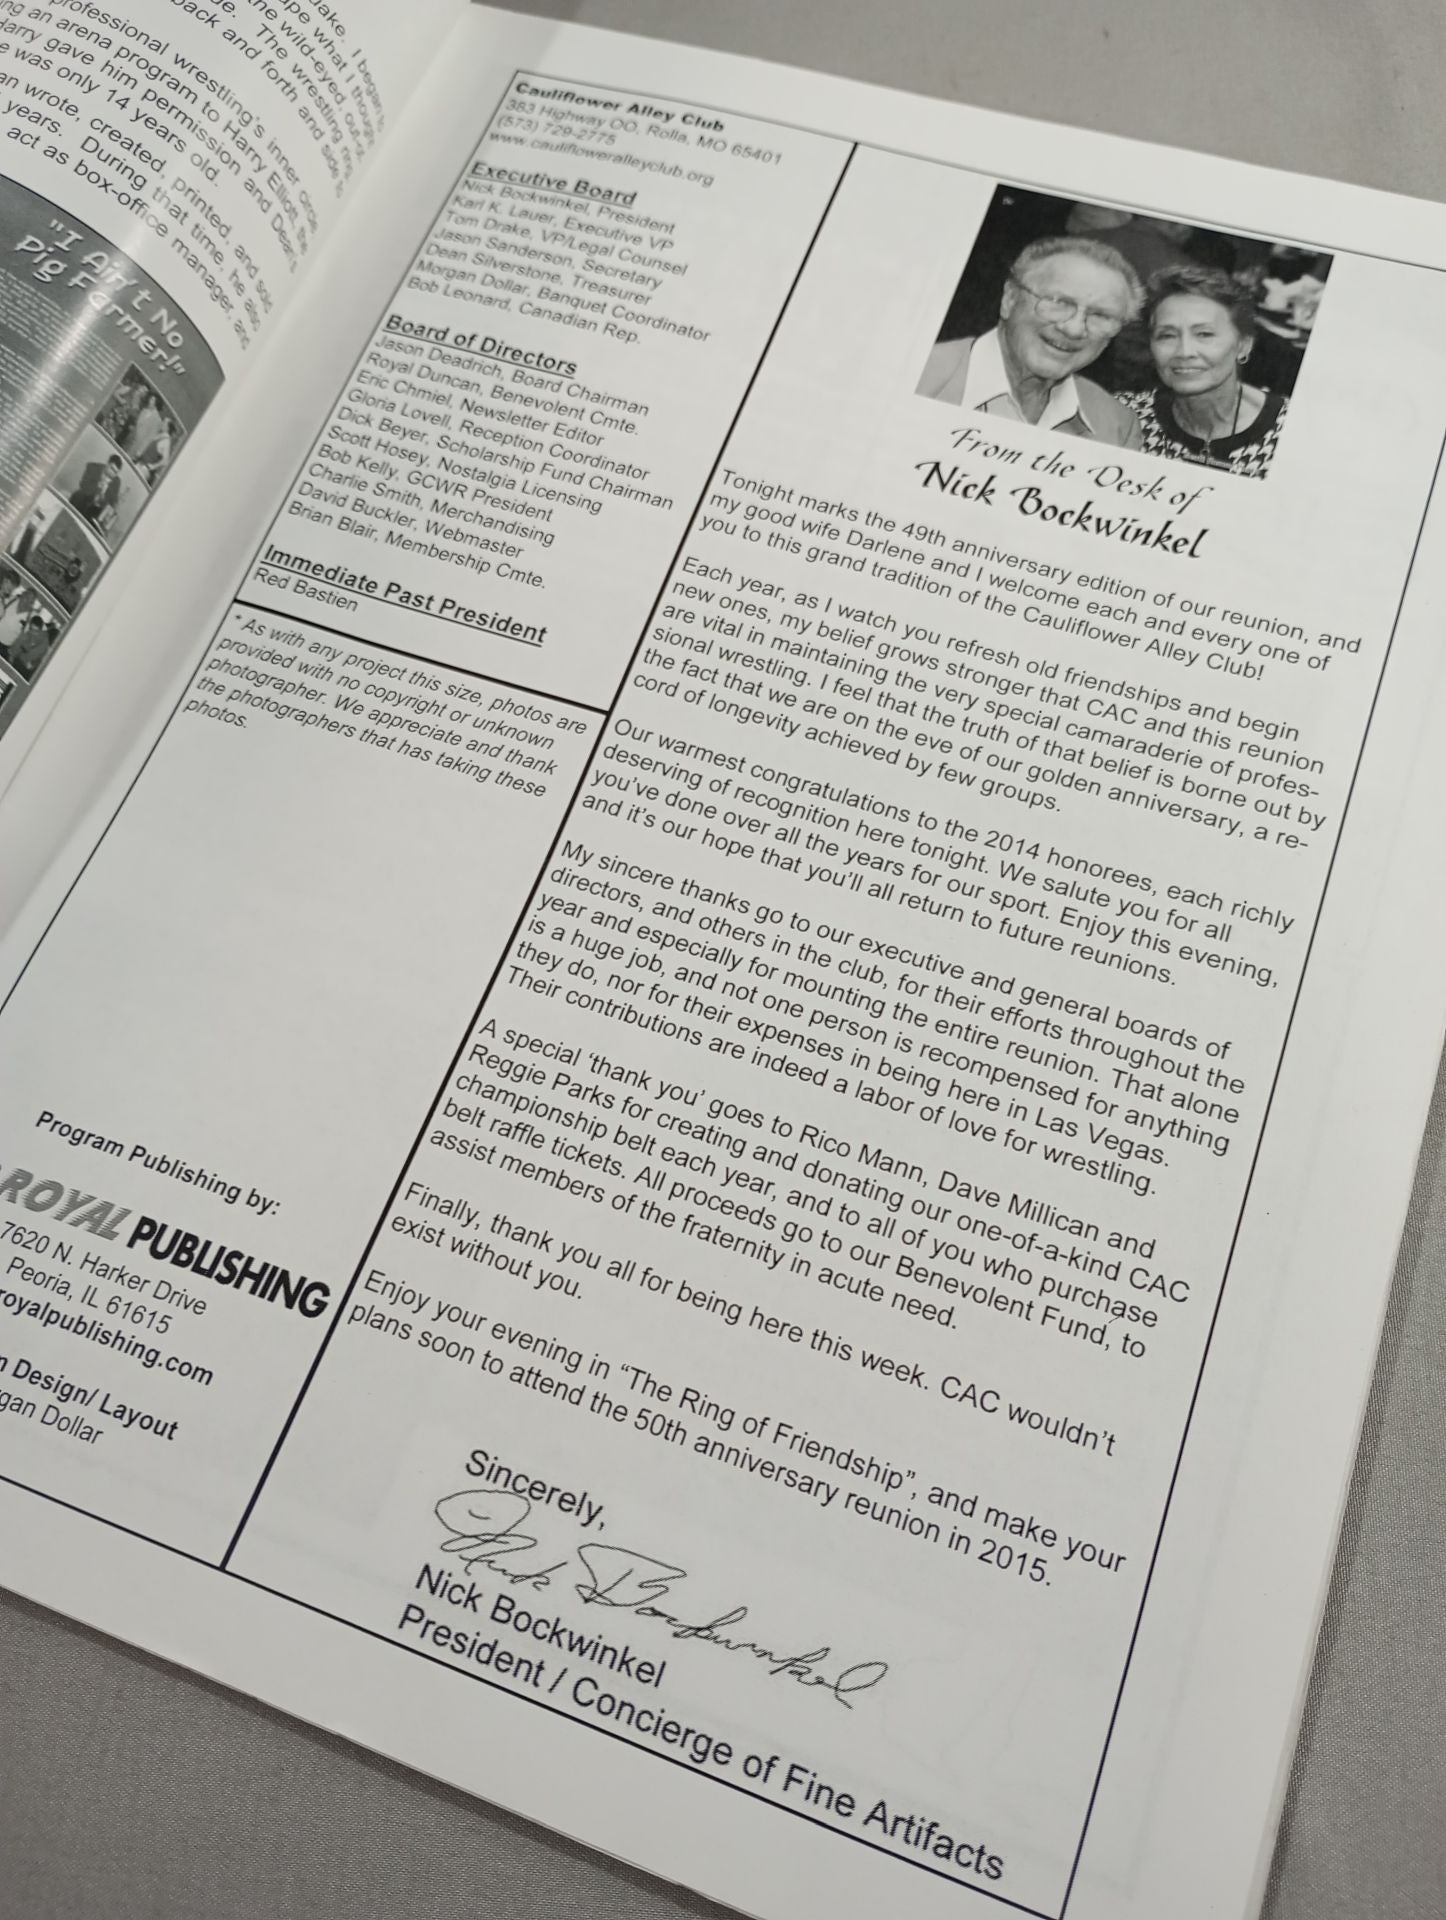 uake. I began to
ape what I though
the wild-eyed, out-of-
The wrestling ring
back and forth and side to
rofessional wrestling's inner circle
ng an arena program to Harry Elliott, the
Harry gave him permission and Dean's
e was only 14 years old.
an wrote, created, printed, and sold
years. During that time, he also
act as box-office manager, and
"I Ain't No
Pig Farmer!"
Cauliflower Alley Club
383 Highway OO, Rolla, MO 65401
(573) 729-2775
www.caulifloweralleyclub.org
Executive Board
Nick Bockwinkel, President
Karl K. Lauer, Executive VP
Tom Drake, VP/Legal Counsel
Jason Sanderson, Secretary
Dean Silverstone, Treasurer
Morgan Dollar, Banquet Coordinator
Bob Leonard, Canadian Rep.
Board of Directors
Jason Deadrich, Board Chairman
Royal Duncan, Benevolent Cmte.
Eric Chmiel, Newsletter Editor
Gloria Lovell, Reception Coordinator
Dick Beyer, Scholarship Fund Chairman
Scott Hosey, Nostalgia Licensing
Bob Kelly, GCWR President
Charlie Smith, Merchandising
David Buckler, Webmaster
Brian Blair, Membership Cmte.
Immediate Past President
Red Bastien
* As with any project this size, photos are
provided with no copyright or unknown
photographer. We appreciate and thank
the photographers that has taking these
photos.
Program Publishing by:
ROYAL PUBLISHING
7620 N. Harker Drive
Peoria, IL 61615
royalpublishing.com
n Design/ Layout
gan Dollar
From the Desk of
Nick Bockwinkel
Tonight marks the 49th anniversary edition of our reunion, and
my good wife Darlene and I welcome each and every one of
you to this grand tradition of the Cauliflower Alley Club!
Each year, as I watch you refresh old friendships and begin
new ones, my belief grows stronger that CAC and this reunion
are vital in maintaining the very special camaraderie of profes-
sional wrestling. I feel that the truth of that belief is borne out by
the fact that we are on the eve of our golden anniversary, a re-
cord of longevity achieved by few groups.
Our warmest congratulations to the 2014 honorees, each richly
deserving of recognition here tonight. We salute you for all
you've done over all the years for our sport. Enjoy this evening,
and it's our hope that you'll all return to future reunions.
My sincere thanks go to our executive and general boards of
directors, and others in the club, for their efforts throughout the
year and especially for mounting the entire reunion. That alone
is a huge job, and not one person is recompensed for anything
they do, nor for their expenses in being here in Las Vegas.
Their contributions are indeed a labor of love for wrestling.
A special 'thank you' goes to Rico Mann, Dave Millican and
Reggie Parks for creating and donating our one-of-a-kind CAC
championship belt each year, and to all of you who purchase
belt raffle tickets. All proceeds go to our Benevolent Fund, to
assist members of the fraternity in acute need.
Finally, thank you all for being here this week. CAC wouldn't
exist without you.
Enjoy your evening in “The Ring of Friendship”, and make your
plans soon to attend the 50th anniversary reunion in 2015.
Sincerely,
Nick Bockwinkel
Nick Bockwinkel
President / Concierge of Fine Artifacts